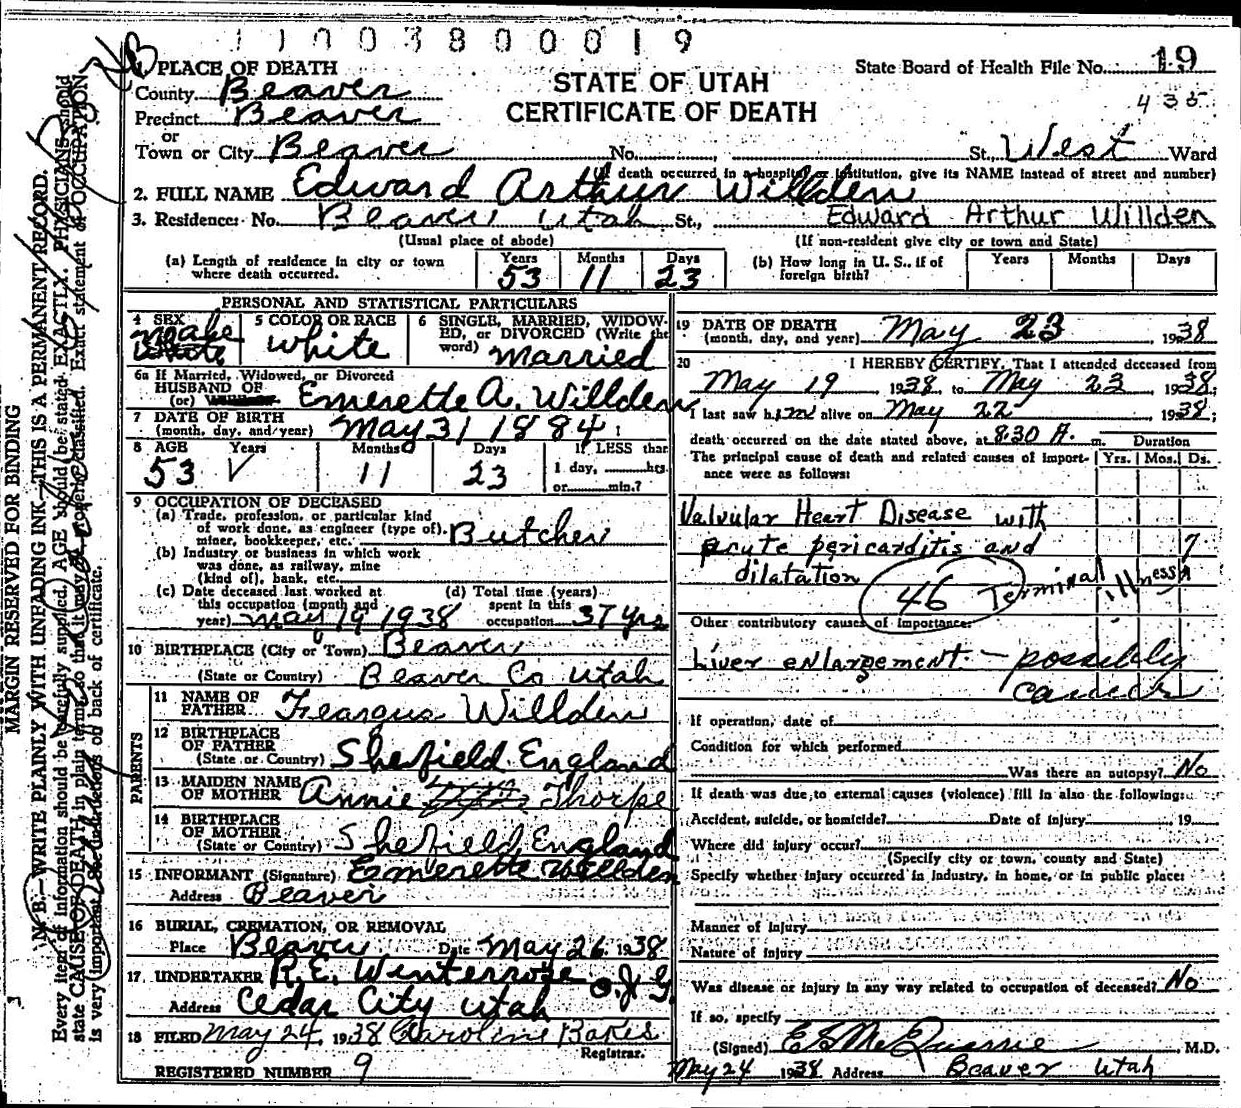 11003800019
19
State Board of Health File No.
435
STATE OF UTAH
CERTIFICATE OF DEATH
1. PLACE OF DEATH
County Beaver
Precinct Beaver
or
Town or City Beaver No. St., West Ward
(If death occurred in a hospital or institution, give its NAME instead of street and number)
2. FULL NAME Edward Arthur Willden
3. Residence: No. Beaver Utah St., Edward Arthur Willden
(Usual place of abode) (If non-resident give city or town and State)
(a) Length of residence in city or town where death occurred. Years 53 Months 11 Days 23
(b) How long in U. S., if of foreign birth? Years Months Days
PERSONAL AND STATISTICAL PARTICULARS
4 SEX Male White
5 COLOR OR RACE White
6 SINGLE, MARRIED, WIDOWED, or DIVORCED (Write the word) Married
6a If Married, Widowed, or Divorced
HUSBAND OF
(or) Emerette A. Willden
7 DATE OF BIRTH
(month, day, and year) May 31 1884
8 AGE Years 53 Months 11 Days 23
If LESS than
1 day, hrs.
or min.?
9 OCCUPATION OF DECEASED
(a) Trade, profession, or particular kind
of work done, as engineer (type of),
miner, bookkeeper, etc. Butcher
(b) Industry or business in which work
was done, as railway, mine
(kind of), bank, etc.
(c) Date deceased last worked at
this occupation (month and
year) May 19 1938
(d) Total time (years)
spent in this
occupation 37 yrs
10 BIRTHPLACE (City or Town) Beaver
(State or Country) Beaver Co Utah
PARENTS
11 NAME OF
FATHER Feargus Willden
12 BIRTHPLACE
OF FATHER
(State or Country) Shefield England
13 MAIDEN NAME
OF MOTHER Annie Thorpe
14 BIRTHPLACE
OF MOTHER
(State or Country) Shefield England
15 INFORMANT (Signature) Emerette Willden
Address Beaver
16 BURIAL, CREMATION, OR REMOVAL
Place Beaver Date May 26, 1938
17. UNDERTAKER R.E. Winterrose O.J.G.
Address Cedar City Utah
18 FILED May 24, 1938 Caroline Bakes
Registrar.
REGISTERED NUMBER 9
19 DATE OF DEATH
(month, day, and year) May 23, 1938
20 I HEREBY CERTIFY, That I attended deceased from
May 19 1938, to May 23 1938;
I last saw him alive on May 22 1938;
death occurred on the date stated above, at 8:30 A. m. Duration
The principal cause of death and related causes of importance were as follows: Yrs. Mos. Ds.
Valvular Heart Disease with
acute pericarditis and 7
dilatation
46 Terminal illness
Other contributory causes of importance:
Liver enlargement. - possibly
cancer
If operation, date of
Condition for which performed
Was there an autopsy? No
If death was due to external causes (violence) fill in also the following:
Accident, suicide, or homicide? Date of injury 19
Where did injury occur?
(Specify city or town, county and State)
Specify whether injury occurred in industry, in home, or in public place:
Manner of Injury
Nature of Injury
Was disease or injury in any way related to occupation of deceased? No
If so, specify
(Signed) E S McQuarrie, M.D.
May 24 1938 Address Beaver Utah
MARGIN RESERVED FOR BINDING
N. B.—WRITE PLAINLY WITH UNFADING INK—THIS IS A PERMANENT RECORD.
Every item of information should be carefully supplied. AGE should be stated EXACTLY. PHYSICIANS should
state CAUSE OF DEATH in plain terms, so that it may be properly classified. Exact statement of OCCUPATION
is very important. See instructions on back of certificate.
3